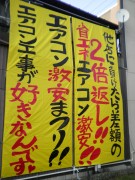 他店に負けたら差額の
2倍返し!!
省エネエアコン激安!!
エアコン激・安まつり!!
エアコン工事が
好きなんです